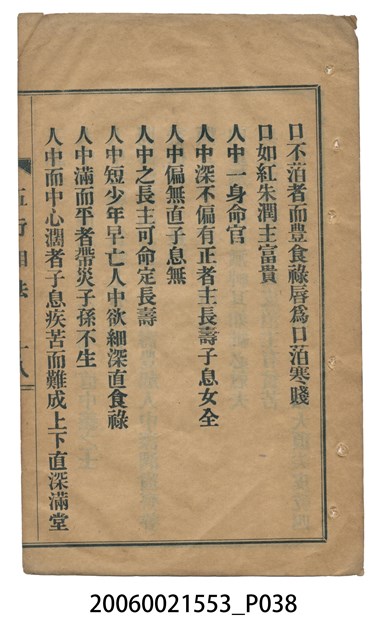 口不滔者而豊食祿唇為口滔寒賤
口如紅朱潤主富貴
人中一身命官
人中深不偏有正者主長壽子息女全
人中偏無直子息無
人中之長主可命定長壽
人中短少年早亡人中欲細深直食祿
人中滿而平者帶災子孫不生
人中而中心濶者子息疾苦而難成上下直深滿堂
五行相法 十八
20060021553_P038